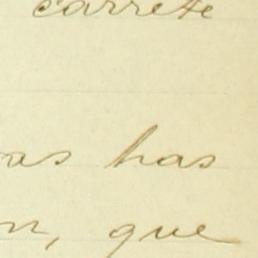 carrete
as has
n, que